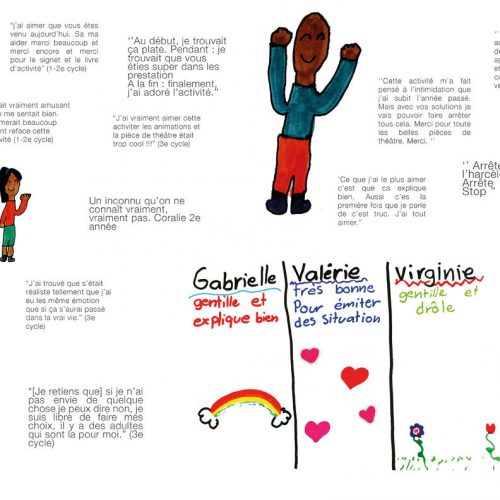 "j'ai aimer que vous êtes
venu aujourd'hui. Sa ma
aider merci beaucoup et
merci encore et merci
pour le signet et le livre
d'activité" (1-2e cycle)
''Au début, je trouvait
ça plate. Pendant : je
trouvait que vous
éties super dans les
prestation
A la fin : finalement,
j'ai adoré l'activité."
ait vraiment amusant
me sentait bien.
merait beaucoup
nt reface cette
vité (1-2e cycle)
"J'ai vraiment aimer cette
activiter les animations et
la pièce de théâtre était
trop cool !!!" (3e cycle)
''Cette activité m'a fait
pensé à l'intimidation que
j'ai subit l'année passé.
Mais avec vos solutions je
vais pouvoir faire arrêter
tous cela. Merci pour toute
les belles pièces de
théâtre. Merci. ''
'' Arrête
l'harcèl
Arrête
Stop "
'Ce que j'ai le plus aimer
c'est que ca explique
bien. Aussi c'es la
première fois que je parle
de c'est truc. J'ai tout
aimer."
Un inconnu qu'on ne
connaît vraiment,
vraiment pas. Coralie 2e
année
"J'ai trouvé que s'était
réaliste tellement que j'ai
eu les même émotion
que si ça s'aurai passé
dans la vrai vie." (3e
cycle)
"[Je retiens que] si je n'ai
pas envie de quelque
chose je peux dire non, je
suis libre de faire mes
choix, il y a des adultes
qui sont là pour moi." (3e
cycle)
Gabrielle
gentille et
explique bien
Valérie
très bonne
Pour émiter
des Situation
Virginie
gentille et
drôle